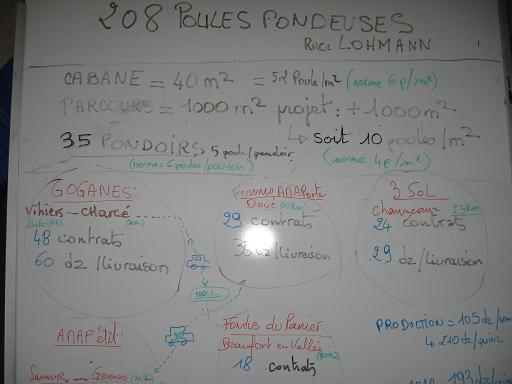 208 POULES PONDEUSES
Race LOHMANN
CABANE = 40 m² = 5,2 Poule/m² (norme 6 p/m²)
PARCOURS = 1000 m² projet : + 1000 m²
↳ soit 10 poules/m²
(norme 4p/m²)
35 PONDOIRS, 5 poules/pondoir
(norme = 6 poules/pondoir)
GOGANES
Vihiers - CHARCÉ
48 contrats
60 dz/livraison
Doué
29 contrats
35 dz/livraison
3 SOL
Chanzeaux
24 contrats
29 dz/livraison
AMAP'étit
Fondus du Panier
Beaufort en Vallée
18 contrats
PRODUCTION = 105 dz/
↳ 210 dz/quinz
193 dz/quinz